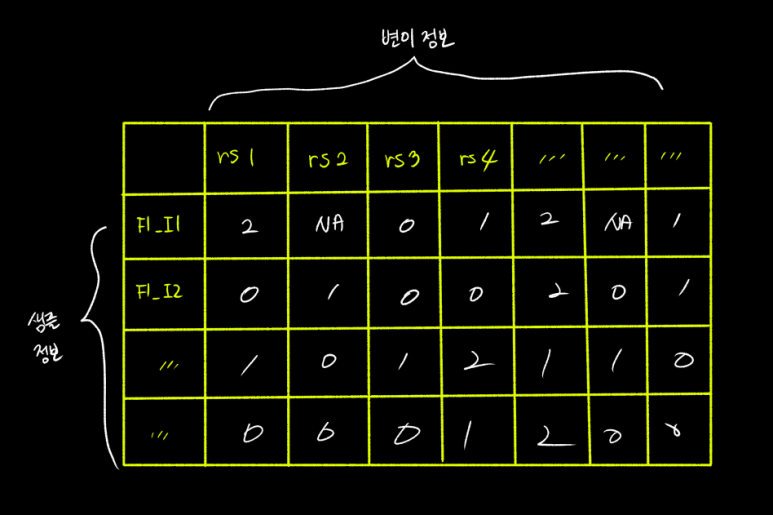 변이 정보
rs1 rs2 rs3 rs4 ,,, ,,, ,,,
F1_I1 2 NA 0 1 2 NA 1
F1_I2 0 1 0 0 2 0 1
,,, 1 0 1 2 1 1 0
,,, 0 0 0 1 2 0
샘플
정보